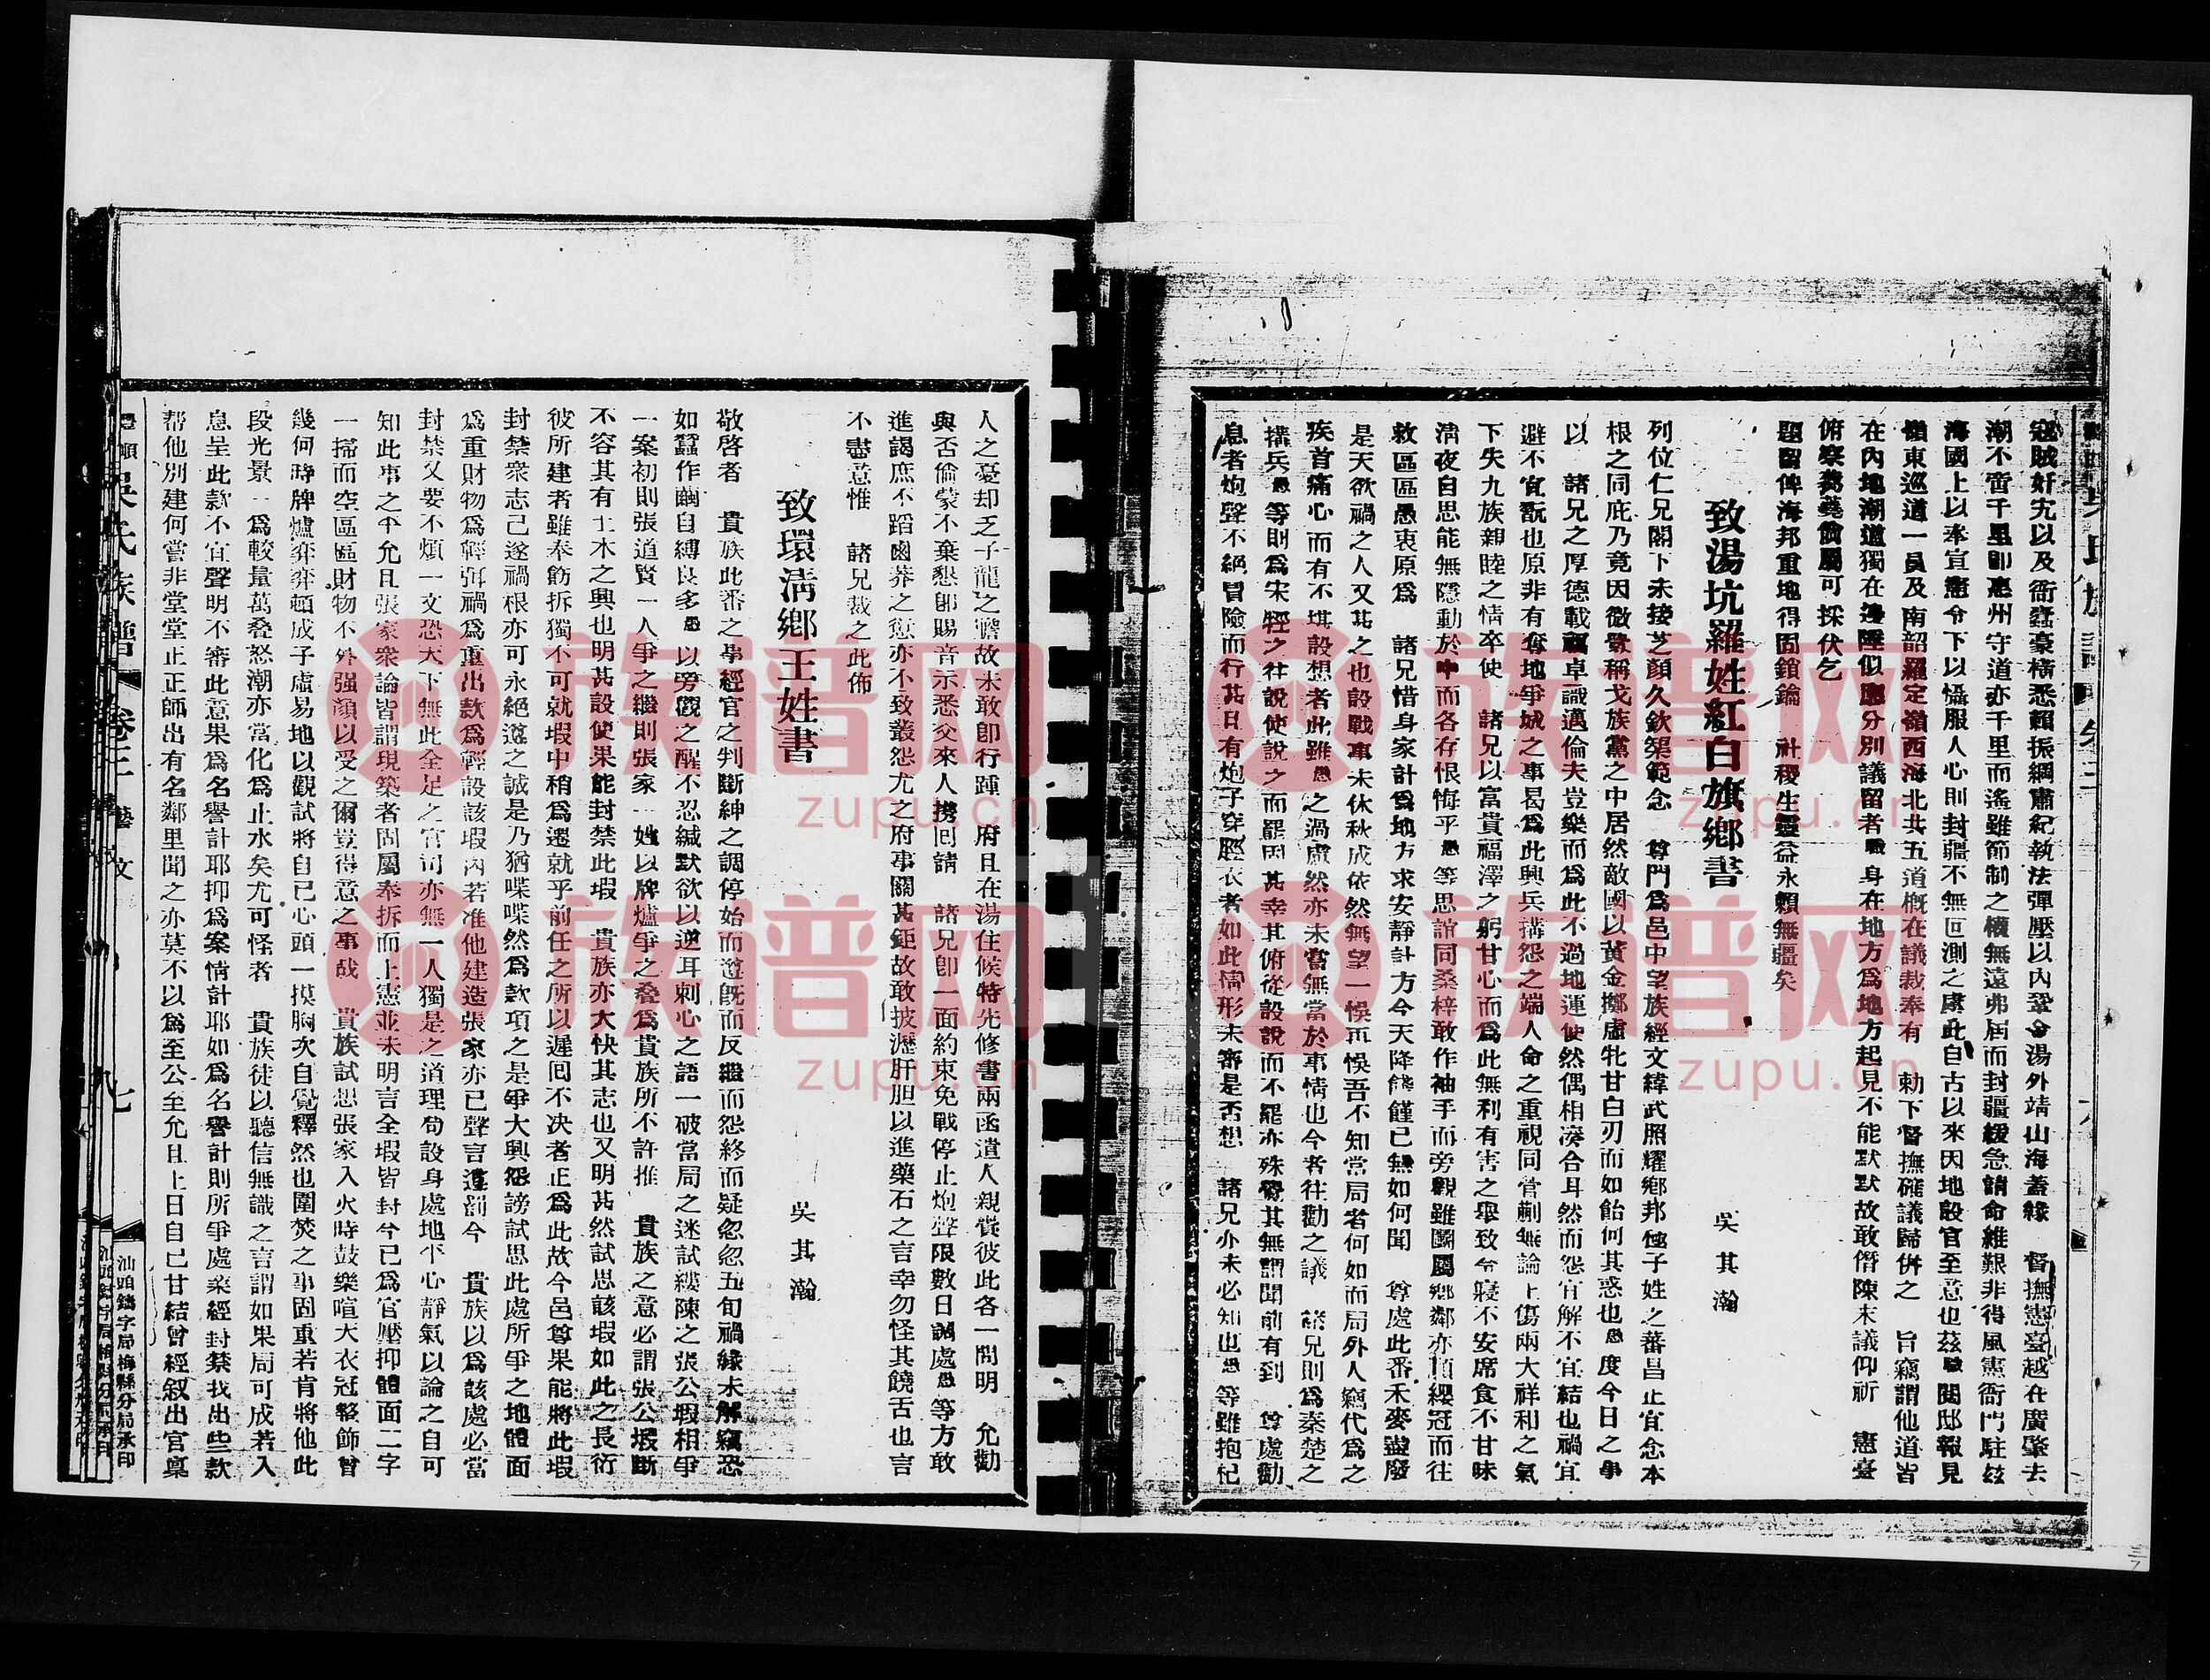 寇賊奸宄以及衙蠹豪橫悉賴振綱肅紀執法彈壓以內鞏金湯外靖山海蓋緣　督撫憲臺越在廣肇去
潮不啻千里卽惠州守道亦千里而遙雖節制之權無遠弗屆而封疆緩急請命維艱非得風憲衙門駐玆
海國上以奉宣憲令下以懾服人心則封疆不無叵測之虞此自古以來因地設官至意也茲職閱邸報見
嶺東巡道一員及南韶羅定嶺西海北共五道槪在議裁奉有　勅下督撫確議歸併之　旨竊謂他道皆
在內地潮道獨在邊陲似應分別議留者職身在地方爲地方起見不能默默故敢僭陳末議仰祈　憲臺
俯察芻蕘倘屬可採伏乞
題留俾海邦重地得固鎖鑰　社稷生靈益永賴無疆矣
致湯坑羅姓紅白旗鄕書
吳其瀚
列位仁兄閣下未接芝顏久欽榘範念　尊門爲邑中望族經文緯武照耀鄕邦極子姓之蕃昌止宜念本
根之同庇乃竟因微釁稱戈族黨之中居然敵國以黃金擲虛牝甘白刃而如飴何其惑也愚度今日之事
以　諸兄之厚德載福卓識邁倫夫豈樂而爲此不過地運使然偶相湊合耳然而怨宜解不宜結也禍宜
避不宜翫也原非有奪地爭城之事曷爲此興兵搆怨之端人命之重視同菅蒯無論上傷兩大祥和之氣
下失九族親睦之情卒使　諸兄以富貴福澤之躬甘心而爲此無利有害之舉致令寢不安席食不甘味
淸夜自思能無隱動於中而各存恨悔乎愚等思誼同桑梓敢作袖手而旁觀雖團屬鄕鄰亦頂纓冠而往
救區區愚衷原爲　諸兄惜身家計爲地方求安靜計方今天降饑饉已無如何聞　尊處此番禾麥盡廢
是天欲禍之人又甚之也設戰事未休秋成依然無望一悞再悞吾不知當局者何如而局外人竊代爲之
疾首痛心而有不堪設想者此雖愚之過慮然亦未嘗無當於事情也今者往勸之議　諸兄則爲秦楚之
搆兵愚等則爲宋牼之往說使說之而罷固甚幸其俯從設說而不罷亦殊覺其無謂聞前有到　尊處勸
息者炮聲不絕冒險而行甚且有炮子穿脛衣者如此情形未審是否想　諸兄亦未必知也愚等雖抱杞
人之憂却乏子龍之膽故未敢卽行踵　府且在湯住候特先修書兩函遣人親賫彼此各一問明　允勸
與否倘蒙不棄懇卽賜音示悉交來人携囘請　諸兄卽一面約束免戰停止炮聲限數日誠處愚等方敢
進謁庶不蹈鹵莽之愆亦不致叢怨尤之府事關甚鉅故敢披瀝肝胆以進藥石之言幸勿怪其饒舌也言
不盡意惟　諸兄裁之此佈
致環淸鄕王姓書
吳其瀚
敬啓者　貴族此番之事經官之判斷紳之調停始而遵旣而反繼而怨終而疑忽忽五旬禍緣未解竊恐
如蠶作繭自縛良多愚以旁觀之醒不忍緘默欲以逆耳刺心之語一破當局之迷試縷陳之張公瑕相爭
一案初則張道賢一人爭之繼則張家一姓以牌爐爭之叠爲貴族所不許推　貴族之意必謂張公瑕斷
不容其有土木之興也明甚設使果能封禁此瑕　貴族亦大快其志也又明甚然試思該瑕如此之長衍
彼所建者雖奉飭拆獨不可就瑕中稍爲遷就乎前任之所以遲囘不决者正爲此故今邑尊果能將此瑕
封禁衆志己遂禍根亦可永絕遵之誠是乃猶喋喋然爲款項之是爭大興怨謗試思此處所爭之地體面
爲重財物爲輕弭禍爲重出款爲輕設該瑕內若准他建造張家亦已聲言遵罰今　貴族以爲該處必當
封禁又要不煩一文恐天下無此全足之官司亦無一人獨是之道理苟設身處地平心靜氣以論之自可
知此事之平允且張家衆論皆謂現築者固屬奉拆而上憲並未明言全瑕皆封今已爲官壓抑體面二字
一掃而空區區財物不外强顏以受之爾豈得意之事哉　貴族試想張家入火時鼓樂喧天衣冠整飾曾
幾何時牌爐弈弈頓成子虛易地以觀試將自已心頭一摸胸次自覺釋然也圍焚之事固重若肯將他此
段光景一爲較量萬叠怒潮亦當化爲止水矣尤可怪者　貴族徒以聽信無識之言謂如果局可成若入
息呈此款不宜聲明不審此意果爲名譽計耶抑爲案情計耶如爲名譽計則所爭處業經封禁找出些款
帮他別建何嘗非堂堂正正師出有名鄰里聞之亦莫不以爲至公至允且上日自己甘結曾經叙出官稟
豐順吳氏族譜　卷三　藝文　七
汕頭鑄字局梅縣分局承印